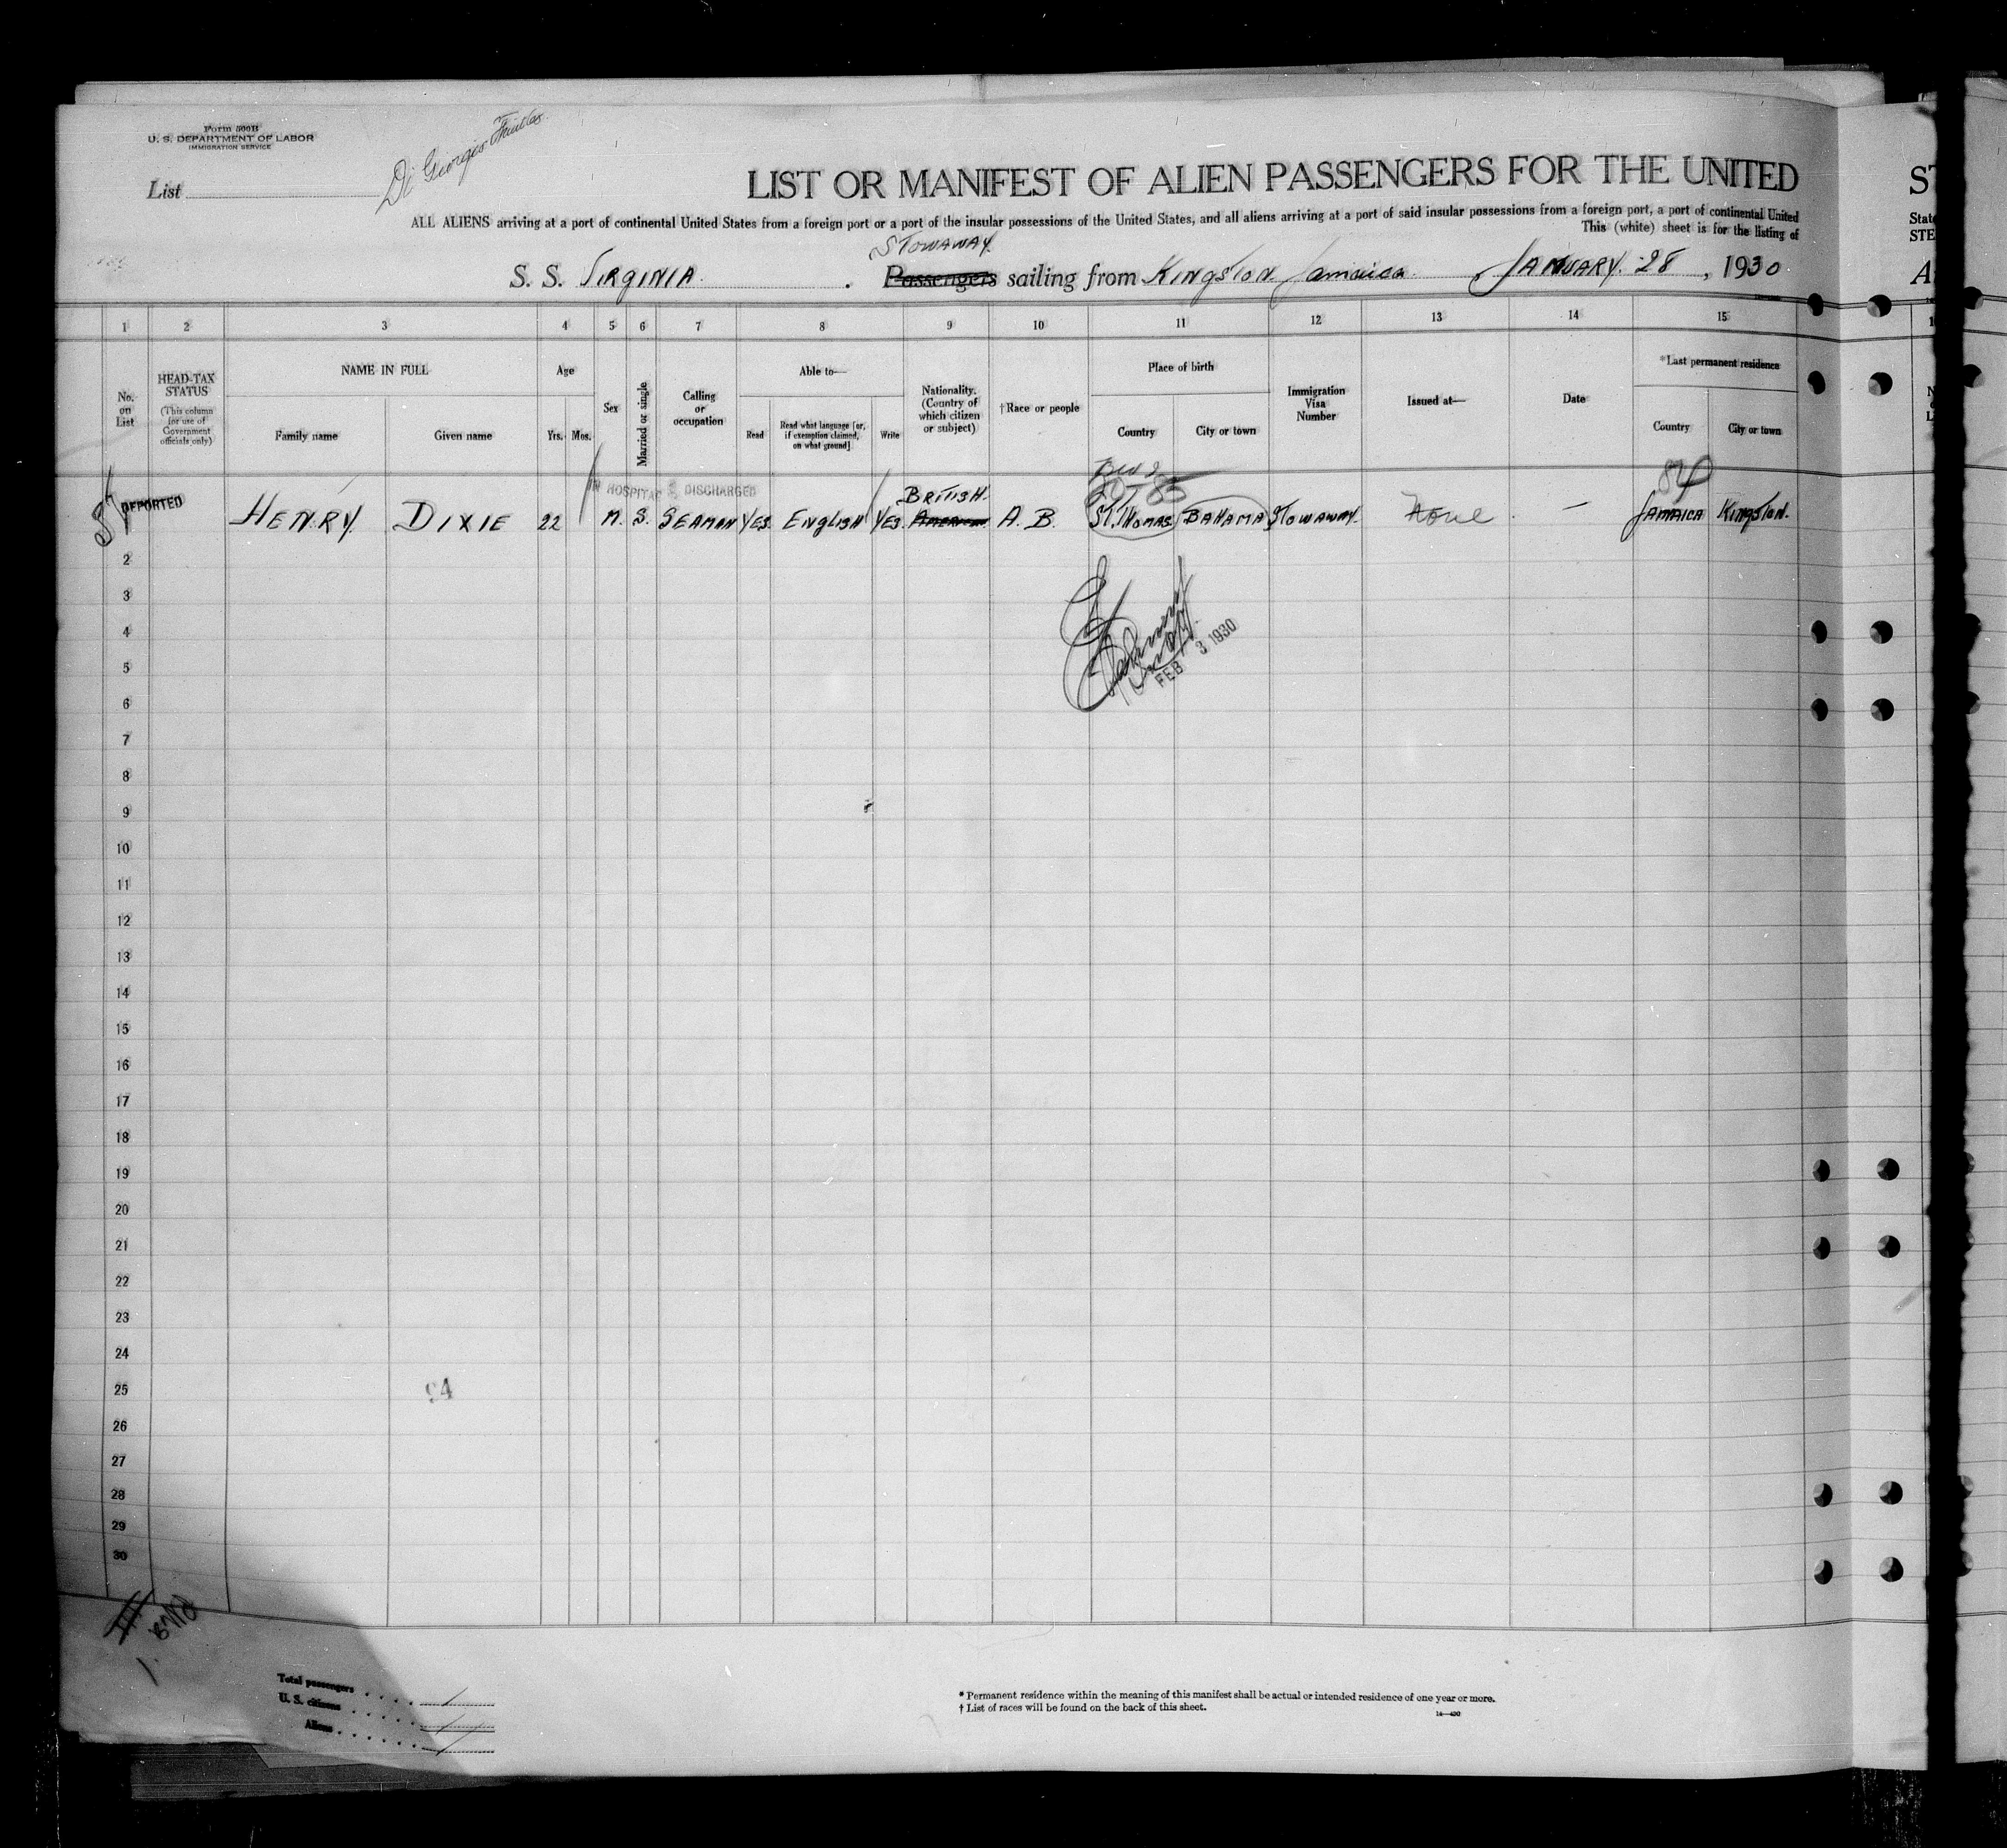 Form 500B
U. S. DEPARTMENT OF LABOR
IMMIGRATION SERVICE
List
Di Giorgio Fruit Co.
LIST OR MANIFEST OF ALIEN PASSENGERS FOR THE UNITED
ALL ALIENS arriving at a port of continental United States from a foreign port or a port of the insular possessions of the United States, and all aliens arriving at a port of said insular possessions from a foreign port, a port of continental United
This (white) sheet is for the listing of
STOWAWAY.
S. S. VIRGINIA. Passengers sailing from KINGSTON Jamaica JANUARY. 28, 1930
1 2 3 4 5 6 7 8 9 10 11 12 13 14 15
No. on List
HEAD-TAX STATUS
(This column for use of Government officials only)
NAME IN FULL
Family name Given name
Age
Yrs. Mos.
Sex
Married or single
Calling or occupation
Able to—
Read
Read what language [or, if exemption claimed, on what ground]
Write
Nationality. (Country of which citizen or subject)
†Race or people
Place of birth
Country City or town
Immigration Visa Number
Issued at—
Date
*Last permanent residence
Country City or town
IN HOSPITAL DISCHARGED
DEPORTED
BRITISH.
HENRY. DIXIE 22 M. S. SEAMAN YES ENGLISH YES. A. B. ST. THOMAS BAHAMA STOWAWAY. None — JAMAICA KINGSTON.
2
3
FEB 3 1930
4
5
6
7
8
9
10
11
12
13
14
15
16
17
18
19
20
21
22
23
24
25
94
26
27
28
29
30
Total passengers 1
U. S. citizens /
Aliens 1
* Permanent residence within the meaning of this manifest shall be actual or intended residence of one year or more.
† List of races will be found on the back of this sheet.